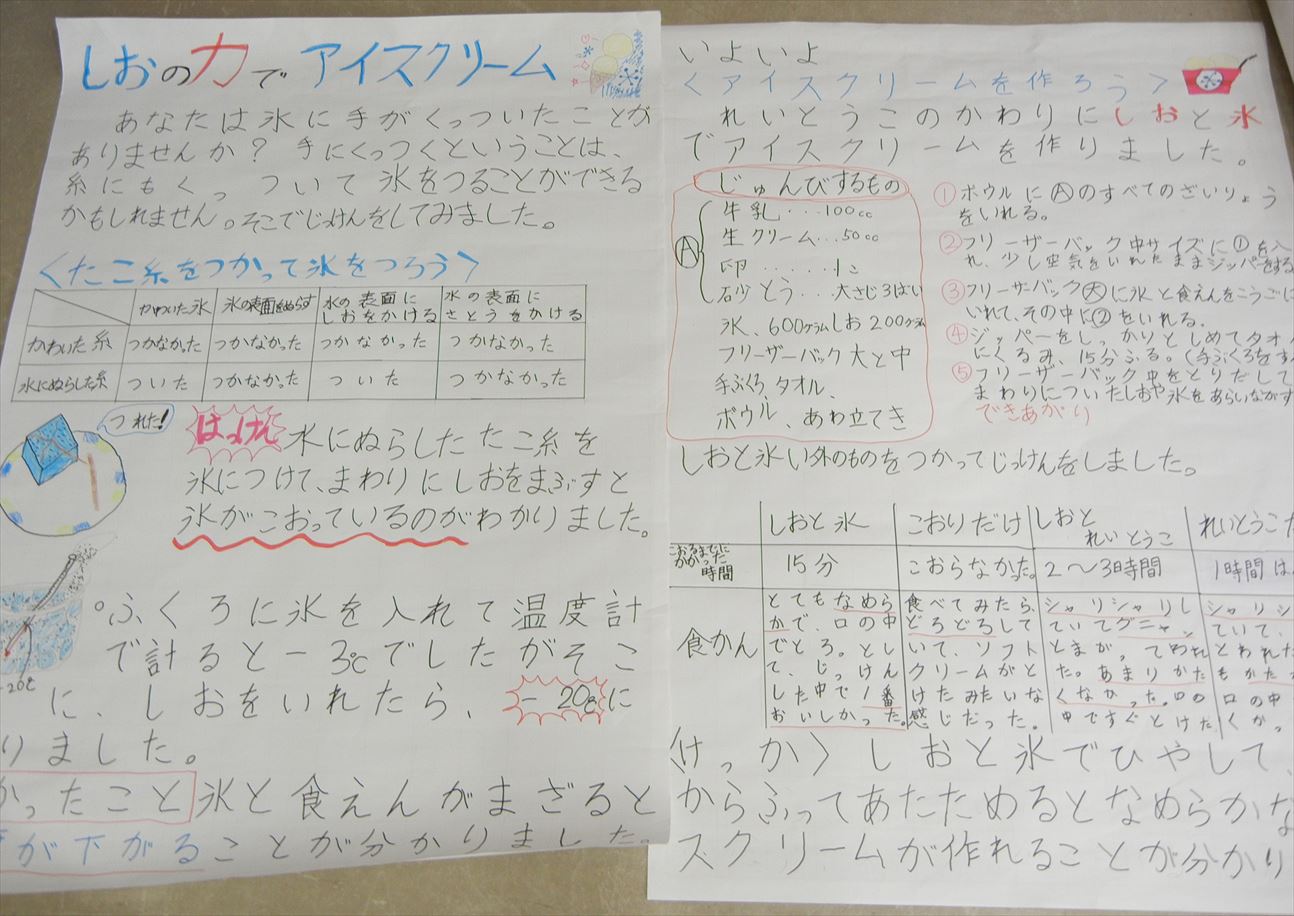 しおの力でアイスクリーム
あなたは氷に手がくっついたことが
ありませんか？手にくっつくということは、
糸にもくっついて氷をつることができる
かもしれません。そこでじっけんをしてみました。
〈たこ糸をつかって氷をつろう〉
かわいた氷 氷の表面をぬらす 氷の表面にしおをかける 氷の表面にさとうをかける
かわいた糸 つかなかった つかなかった つかなかった つかなかった
水にぬらした糸 ついた つかなかった ついた つかなかった
つれた!
はっけん 水にぬらしたたこ糸を
氷につけて、まわりにしおをまぶすと
氷がこおっているのがわかりました。
。ふくろに氷を入れて温度計
で計ると-3℃でしたがそこ
に、しおをいれたら、-20℃に
-20℃
りました。
かったこと氷と食えんがまざると
が下がることが分かりました。
いよいよ
〈アイスクリームを作ろう〉
れいとうこのかわりにしおと氷
でアイスクリームを作りました。
じゅんびするもの
Ⓐ
牛乳・・・100cc
生クリーム・・・50cc
卵・・・・・・1こ
砂とう・・・大さじ3ばい
氷、600グラムしお200グラム
フリーザーバック大と中
手ぶくろ、タオル、
ボウル、あわ立てき
①ボウルにⒶのすべてのざいりょう
をいれる。
②フリーザーバック中サイズに①を入
れ、少し空気をいれたままジッパーをする
③フリーザバック大に氷と食えんをこうごに
いれて、その中に②をいれる。
④ジッパーをしっかりとしめてタオル
にくるみ、15分ふる。(手ぶくろをす
⑤フリーザーバック中をとりだして
まわりについたしおや氷をあらいながす
できあがり
しおと氷い外のものをつかってじっけんをしました。
しおと氷 こおりだけ しおとれいとうこ れいとうこだ
こおるまでにかかった時間 15分 こおらなかった。 2～3時間 1時間は
食かん
とてもなめら
かで、口の中
でとろ。とし
て、じっけん
した中で1番
おいしかった。
食べてみたら、
どろどろして
いて、ソフト
クリームがと
けたみたいな
感じだった。
シャリシャリし
ていてグニャッ
とまがってわれ
た。あまりかた
くなかった。口の
中ですぐとけた
シャリシ
ていて、
とわれた
もかたか
口の中
くかっ
〈けっか〉しおと氷でひやして、
からふってあたためるとなめらかな
スクリームが作れることが分かり